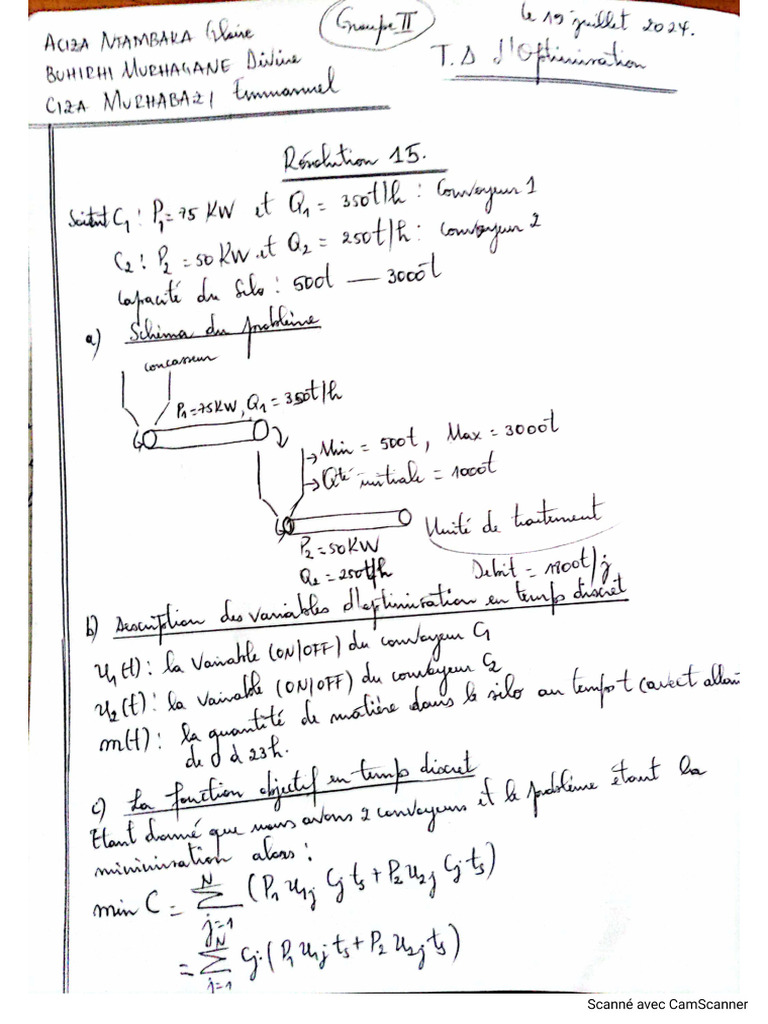 Groupe II
le 19 juillet 2024.
ACIZA NTAMBAKA Claire
BUHIRHI MURHAGANE Divine
CIZA MURHABAZI Emmanuel
T.D d'Optimisation
Résolution 15.
Soient C1 : P1 = 75 KW et Q1 = 350t/h : Convoyeur 1
C2 : P2 = 50 KW et Q2 = 250t/h : convoyeur 2
Capacité du Silo : 500t — 3000t
a) Schéma du problème
concasseur
P1=75KW, Q1 = 350t/h
→ Min = 500t, Max = 3000t
→ Qté initiale = 1000t
Unité de traitement
P2 = 50KW
Q2 = 250t/h
Debit =
b) Description des variables d'optimisation en temps discret
u1(t) : la Variable (ON/OFF) du convoyeur C1
u2(t) : la variable (ON/OFF) du convoyeur C2
m(t) : la quantité de matière dans le silo au temps t (avec t allant
de 0 à 23h.
c) La fonction objectif en temps discret
Etant donné que nous avons 2 convoyeurs et le problème étant la
minimisation alors :
min C = N∑j=1 (P1 u1j Cj ts + P2 u2j Cj ts)
= N∑j=1 Cj.(P1 u1j ts + P2 u2j ts)
Scanné avec CamScanner